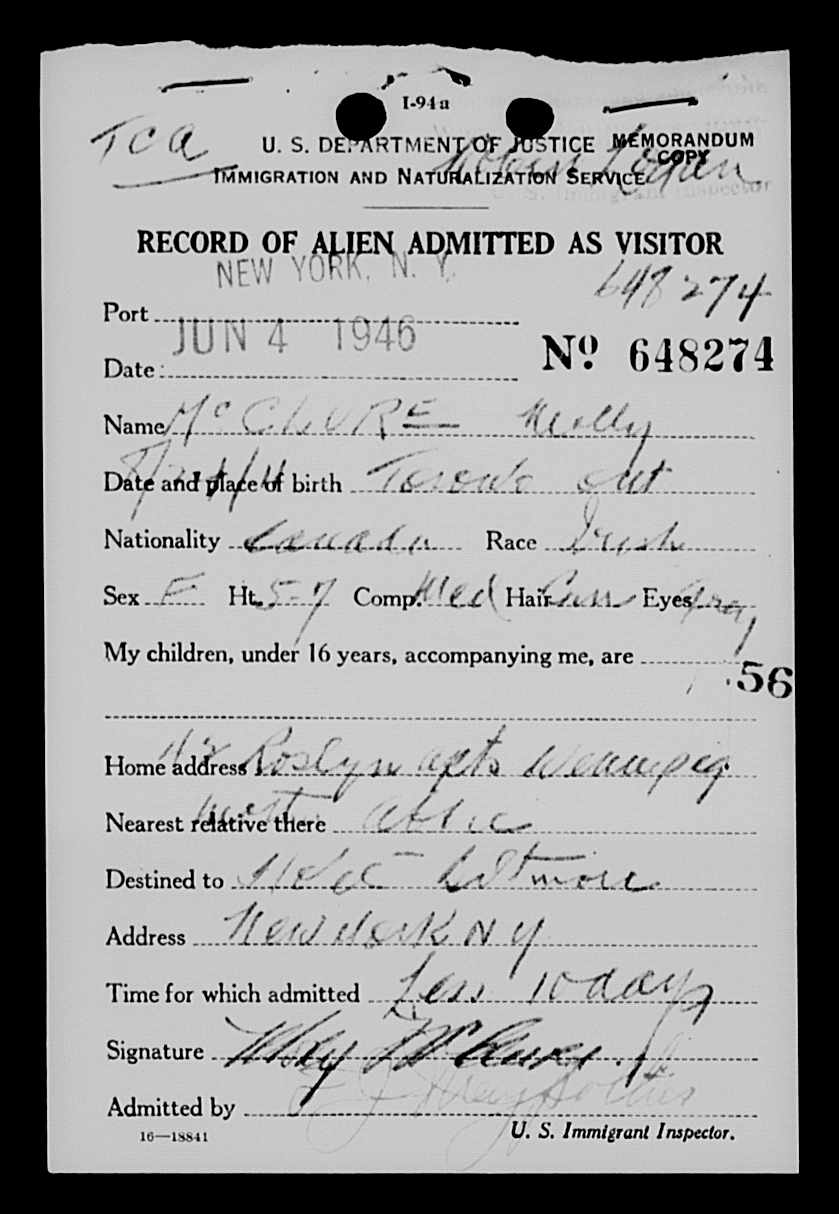 I-94a
TCA U. S. DEPARTMENT OF JUSTICE MEMORANDUM COPY
IMMIGRATION AND NATURALIZATION SERVICE
RECORD OF ALIEN ADMITTED AS VISITOR
NEW YORK, N. Y. 648274
Port
JUN 4 1946
Date
Nº 648274
Name McCLURE
Date and place of birth Toronto Ont
Nationality Canada Race Irish
Sex F Ht. 5-7 Comp. Med Hair Eyes Gray
My children, under 16 years, accompanying me, are
56
Home address Roslyn apts Winnipeg
Nearest relative there
Destined to Hotel Biltmore
Address New York N Y
Time for which admitted Less 10 days
Signature McClure
Admitted by
16—18841 U. S. Immigrant Inspector.